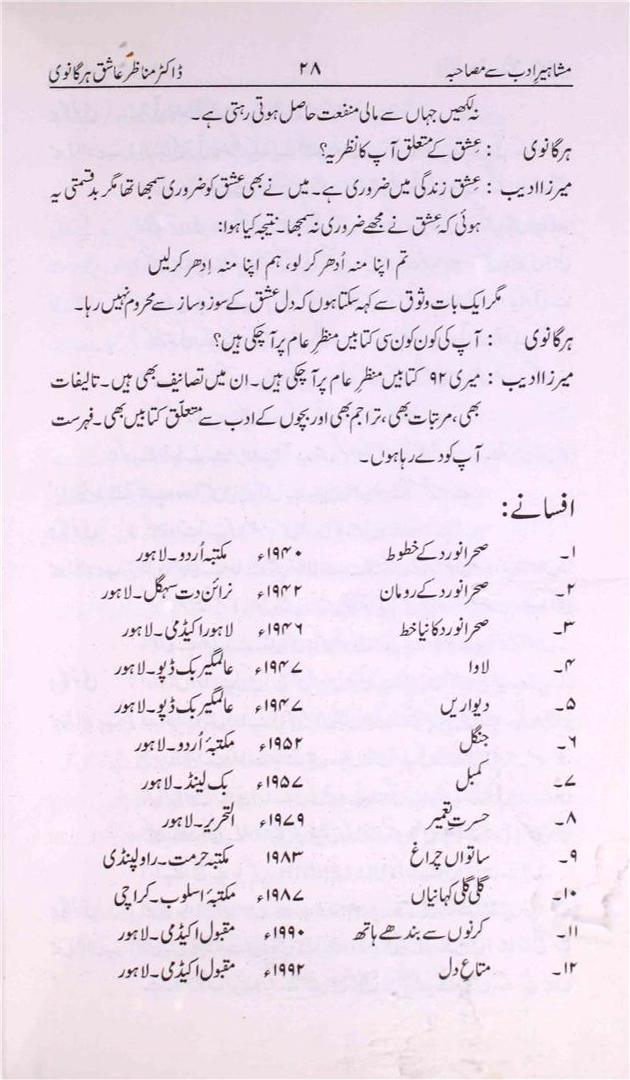 مشاہیرِ ادب سے مصاحبہ ۲۸ ڈاکٹر مناظر عاشق ہرگانوی
نہ لکھیں جہاں سے مالی منفعت حاصل ہوتی رہتی ہے۔
ہرگانوی : عشق کے متعلق آپ کا نظریہ؟
میرزا ادیب : عشق زندگی میں ضروری ہے۔ میں نے بھی عشق کو ضروری سمجھا تھا مگر بدقسمتی یہ
ہوئی کہ عشق نے مجھے ضروری نہ سمجھا۔ نتیجہ کیا ہوا:
تم اپنا منہ اُدھر کر لو، ہم اپنا منہ اِدھر کر لیں
مگر ایک بات وثوق سے کہہ سکتا ہوں کہ دل عشق کے سوز و ساز سے محروم نہیں رہا۔
ہرگانوی : آپ کی کون کون سی کتابیں منظرِ عام پر آ چکی ہیں؟
میرزا ادیب : میری ۹۲ کتابیں منظرِ عام پر آ چکی ہیں۔ ان میں تصانیف بھی ہیں۔ تالیفات
بھی، مرتبات بھی، تراجم بھی اور بچوں کے ادب سے متعلق کتابیں بھی۔ فہرست
آپ کو دے رہا ہوں۔
افسانے:
۱۔ صحرا نورد کے خطوط ۱۹۴۰ء مکتبہ اُردو۔ لاہور
۲۔ صحرا نورد کے رومان ۱۹۴۲ء نرائن دت سہگل۔ لاہور
۳۔ صحرا نورد کا نیا خط ۱۹۴۶ء لاہور اکیڈمی۔ لاہور
۴۔ لاوا ۱۹۴۷ء عالمگیر بک ڈپو۔ لاہور
۵۔ دیواریں ۱۹۴۷ء عالمگیر بک ڈپو۔ لاہور
۶۔ جنگل ۱۹۵۲ء مکتبۂ اُردو۔ لاہور
۷۔ کمبل ۱۹۵۷ء بک لینڈ۔ لاہور
۸۔ حسرتِ تعمیر ۱۹۷۹ء التحریر۔ لاہور
۹۔ ساتواں چراغ ۱۹۸۳ء مکتبہ حرمت۔ راولپنڈی
۱۰۔ گلی گلی کہانیاں ۱۹۸۷ء مکتبۂ اسلوب۔ کراچی
۱۱۔ کرنوں سے بندھے ہاتھ ۱۹۹۰ء مقبول اکیڈمی۔ لاہور
۱۲۔ متاعِ دل ۱۹۹۲ء مقبول اکیڈمی۔ لاہور